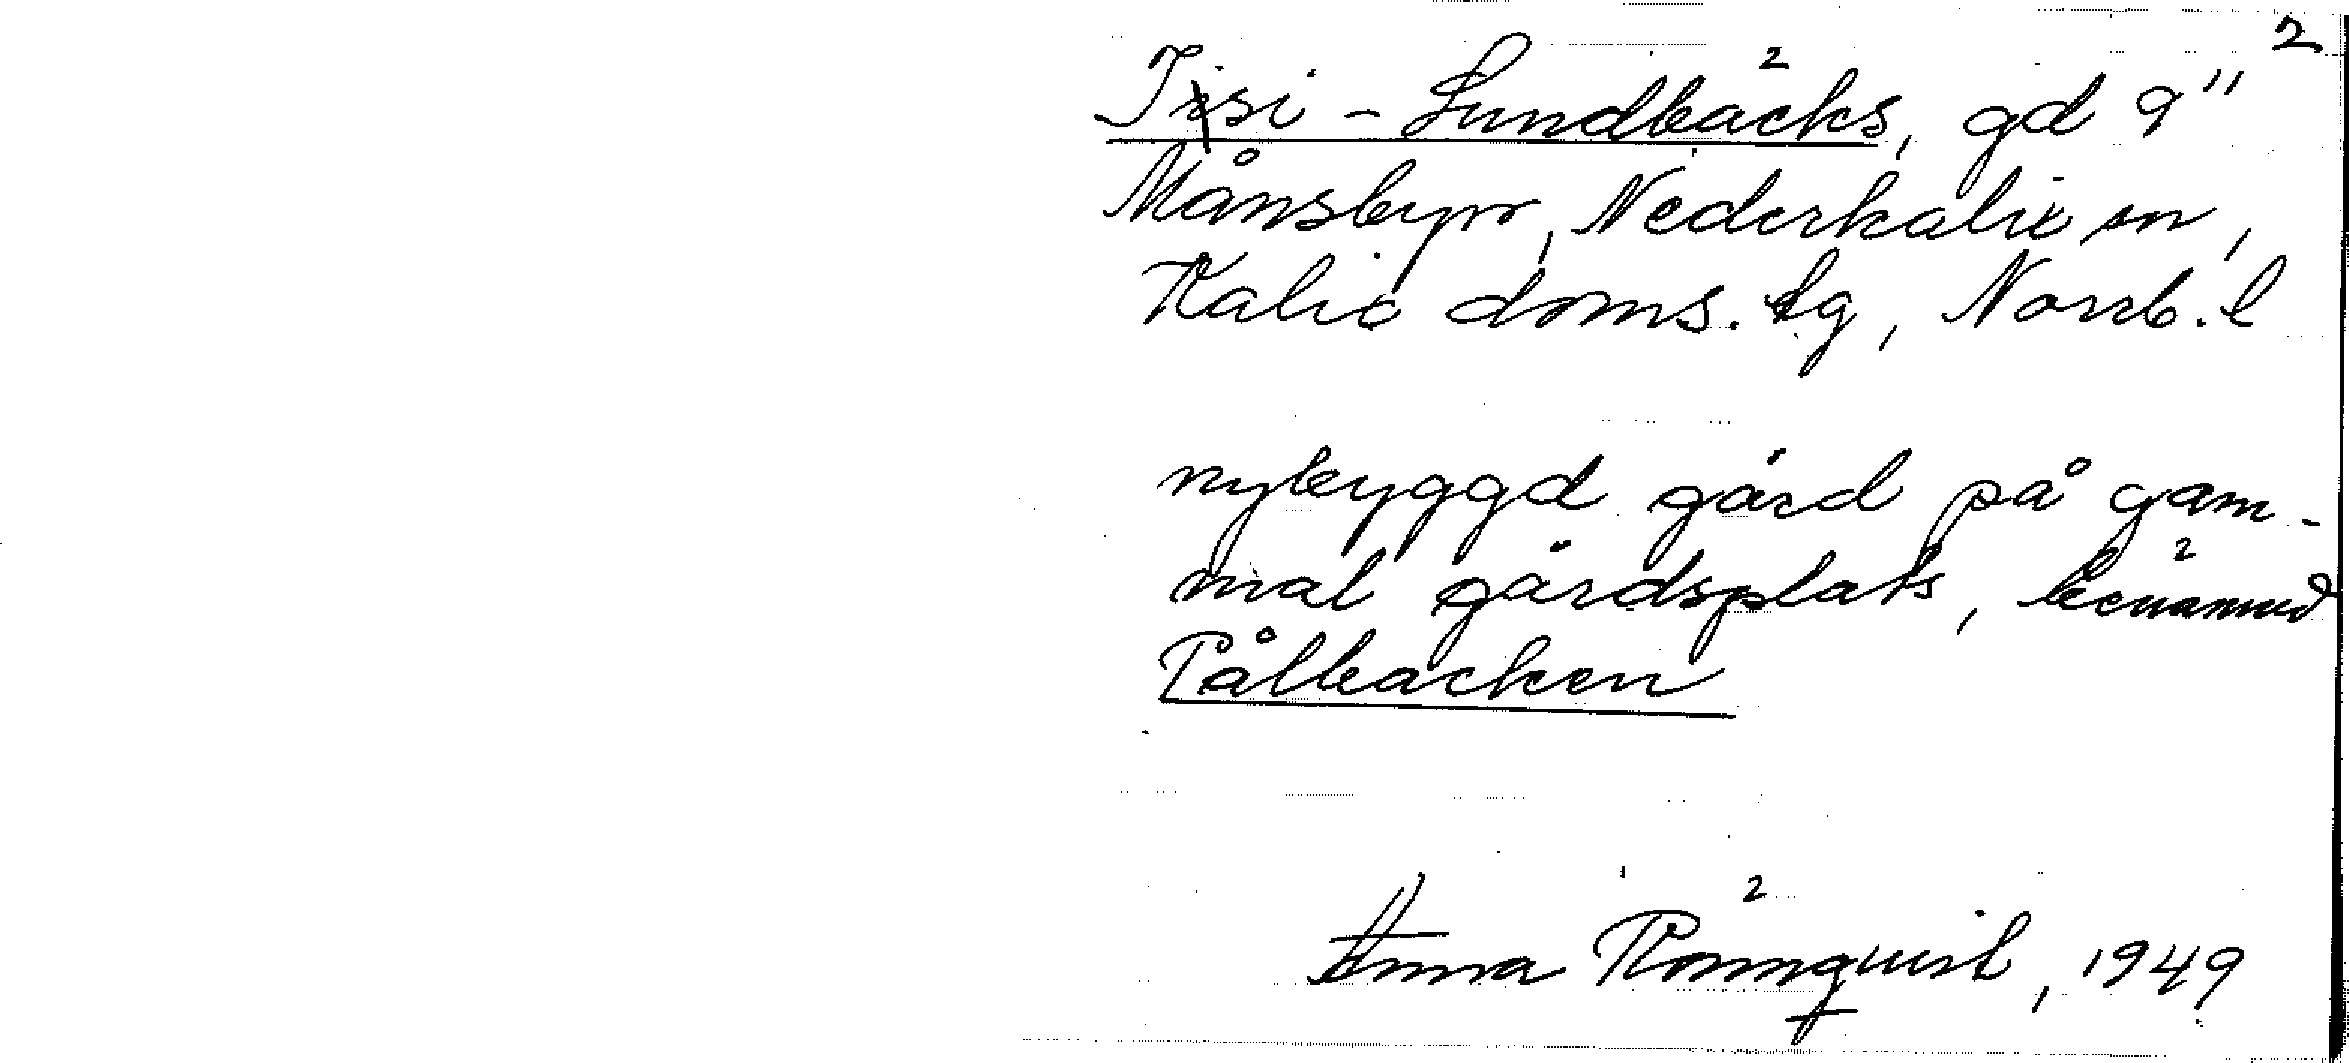 2
Tisi - Lundbäcks, gd 9"
Månsbyn, Nederkalix sn,
Kalix doms. tg, Norrb. l
nybyggd gård på gam-
mal gårdsplats, benämnd
Pålbacken
Anna Rönnquist, 1949